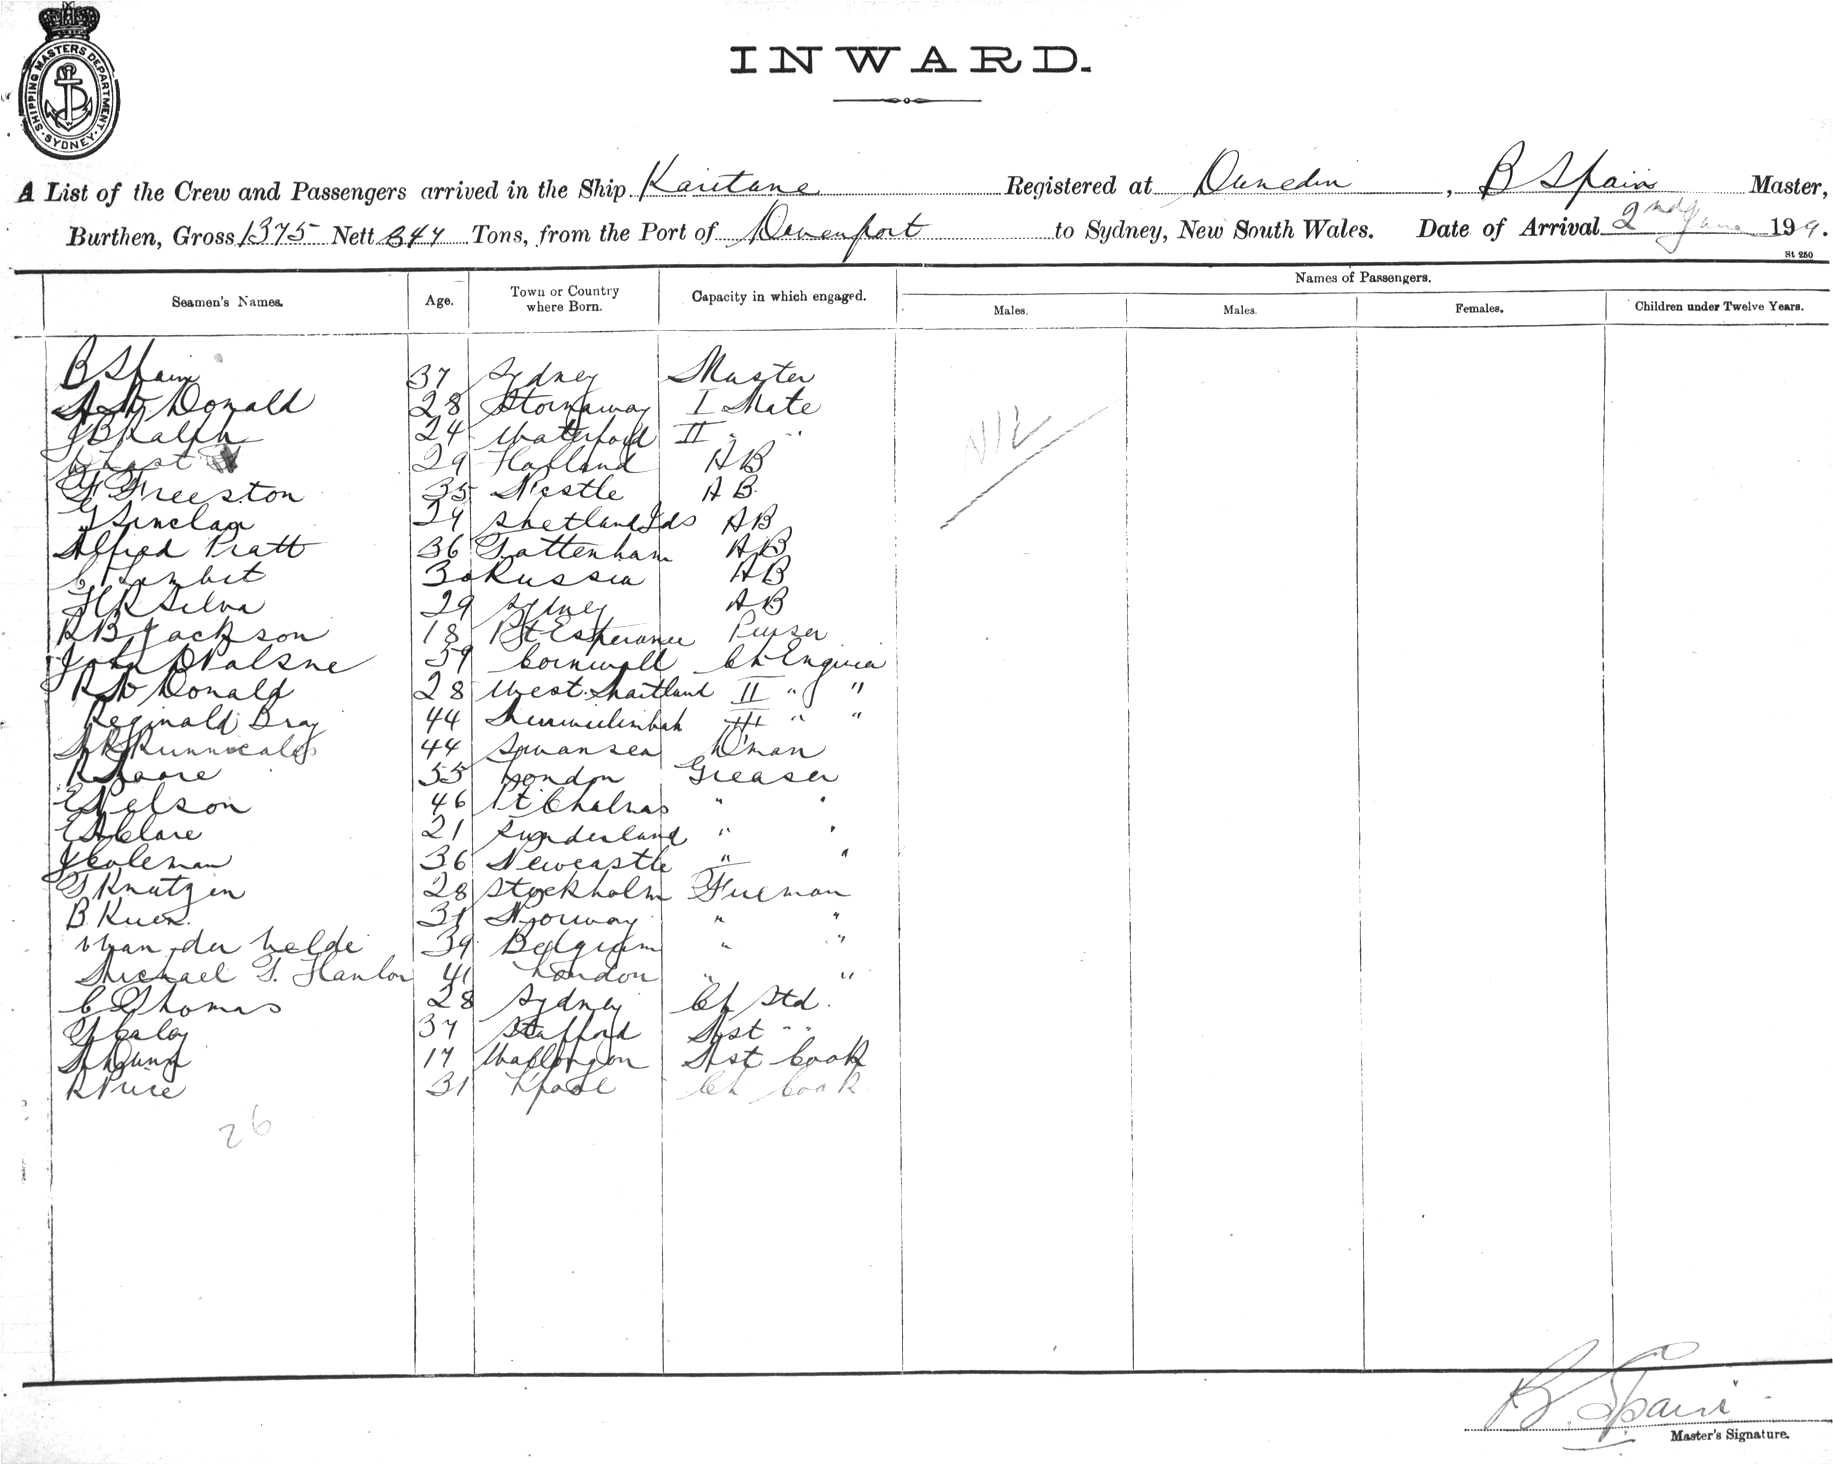 SHIPPING MASTERS DEPARTMENT. SYDNEY
INWARD.
A List of the Crew and Passengers arrived in the Ship Karitane Registered at Dunedin, B Spain Master,
Burthen, Gross 1375 Nett 844 Tons, from the Port of Devenport to Sydney, New South Wales. Date of Arrival 2nd June 199.
St 250
Seamen's Names. Age. Town or Country where Born. Capacity in which engaged. Names of Passengers.
Males. Males. Females. Children under Twelve Years.
B Spain 37 Sydney Master
A McDonald 28 Stornaway I Mate
J B Ralph 24 Waterford II " "
29 Holland AB
F Freeston 35 N'castle AB.
G Sinclair 29 Shetland Ids AB
Alfred Pratt 36 Tottenham AB
C Limbit 30 Russia AB
H R Silva 29 Sydney AB
R B Jackson 18 Pt Esperance Purser
John 59 Cornwall Ch Engineer
R McDonald 28 West Maitland II " "
Reginald Bray 44 Murwillimbah III " "
Runnicals 44 Swansea D'man
R Moore 55 London Greaser
E Nelson 46 Pt Chalmas " "
E A Clare 21 Sunderland " "
J Coleman 36 Newcastle " "
T Knutzen 28 Stockholm Fireman
B. Kuen. 31 Norway " "
V van der Velde 39 Belgium " "
Michael T. Hanlon 41 London " "
C E Thomas 28 Sydney Ch Std.
T Ealey 37 Stafford Asst " "
A Dunn 17 Wollongon Asst Cook
R Price 31 L'pool Ch Cook
NIL
26
B. Spain
Master's Signature.